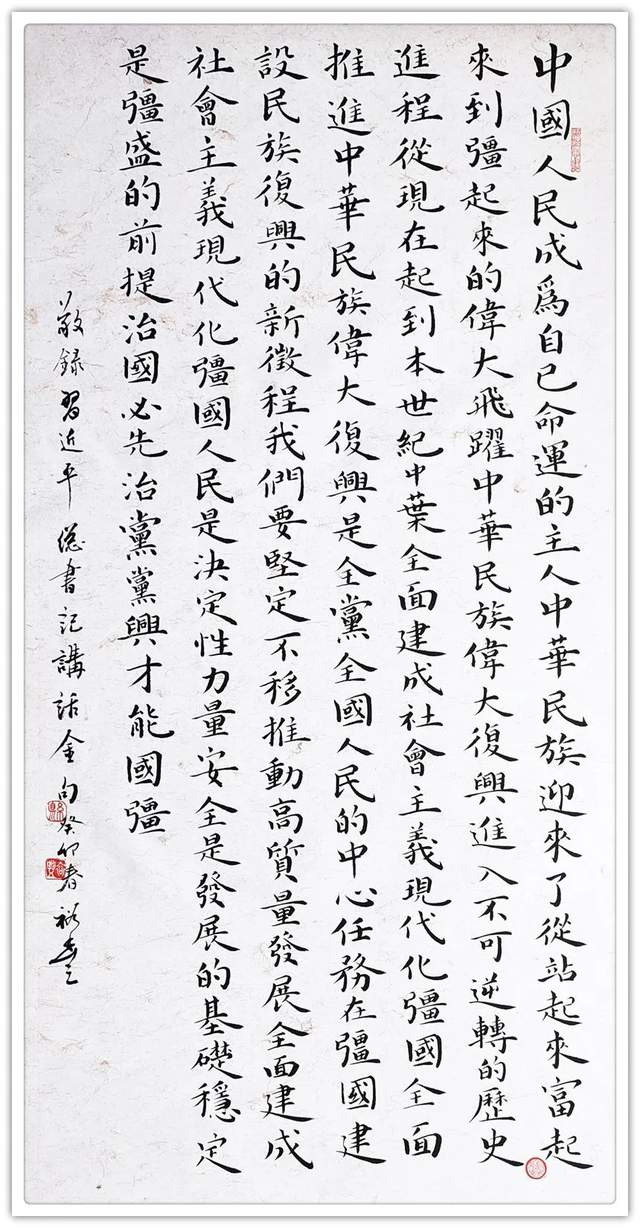 中國人民成爲自己命運的主人中華民族迎來了從站起來富起
來到彊起來的偉大飛躍中華民族偉大復興進入不可逆轉的歷史
進程從現在起到本世紀中葉全面建成社會主義現代化彊國全面
推進中華民族偉大復興是全黨全國人民的中心任務在彊國建
設民族復興的新徵程我們要堅定不移推動高質量發展全面建成
社會主義現代化彊國人民是決定性力量安全是發展的基礎穩定
是彊盛的前提治國必先治黨黨興才能國彊
敬錄習近平總書記講話金句癸卯春